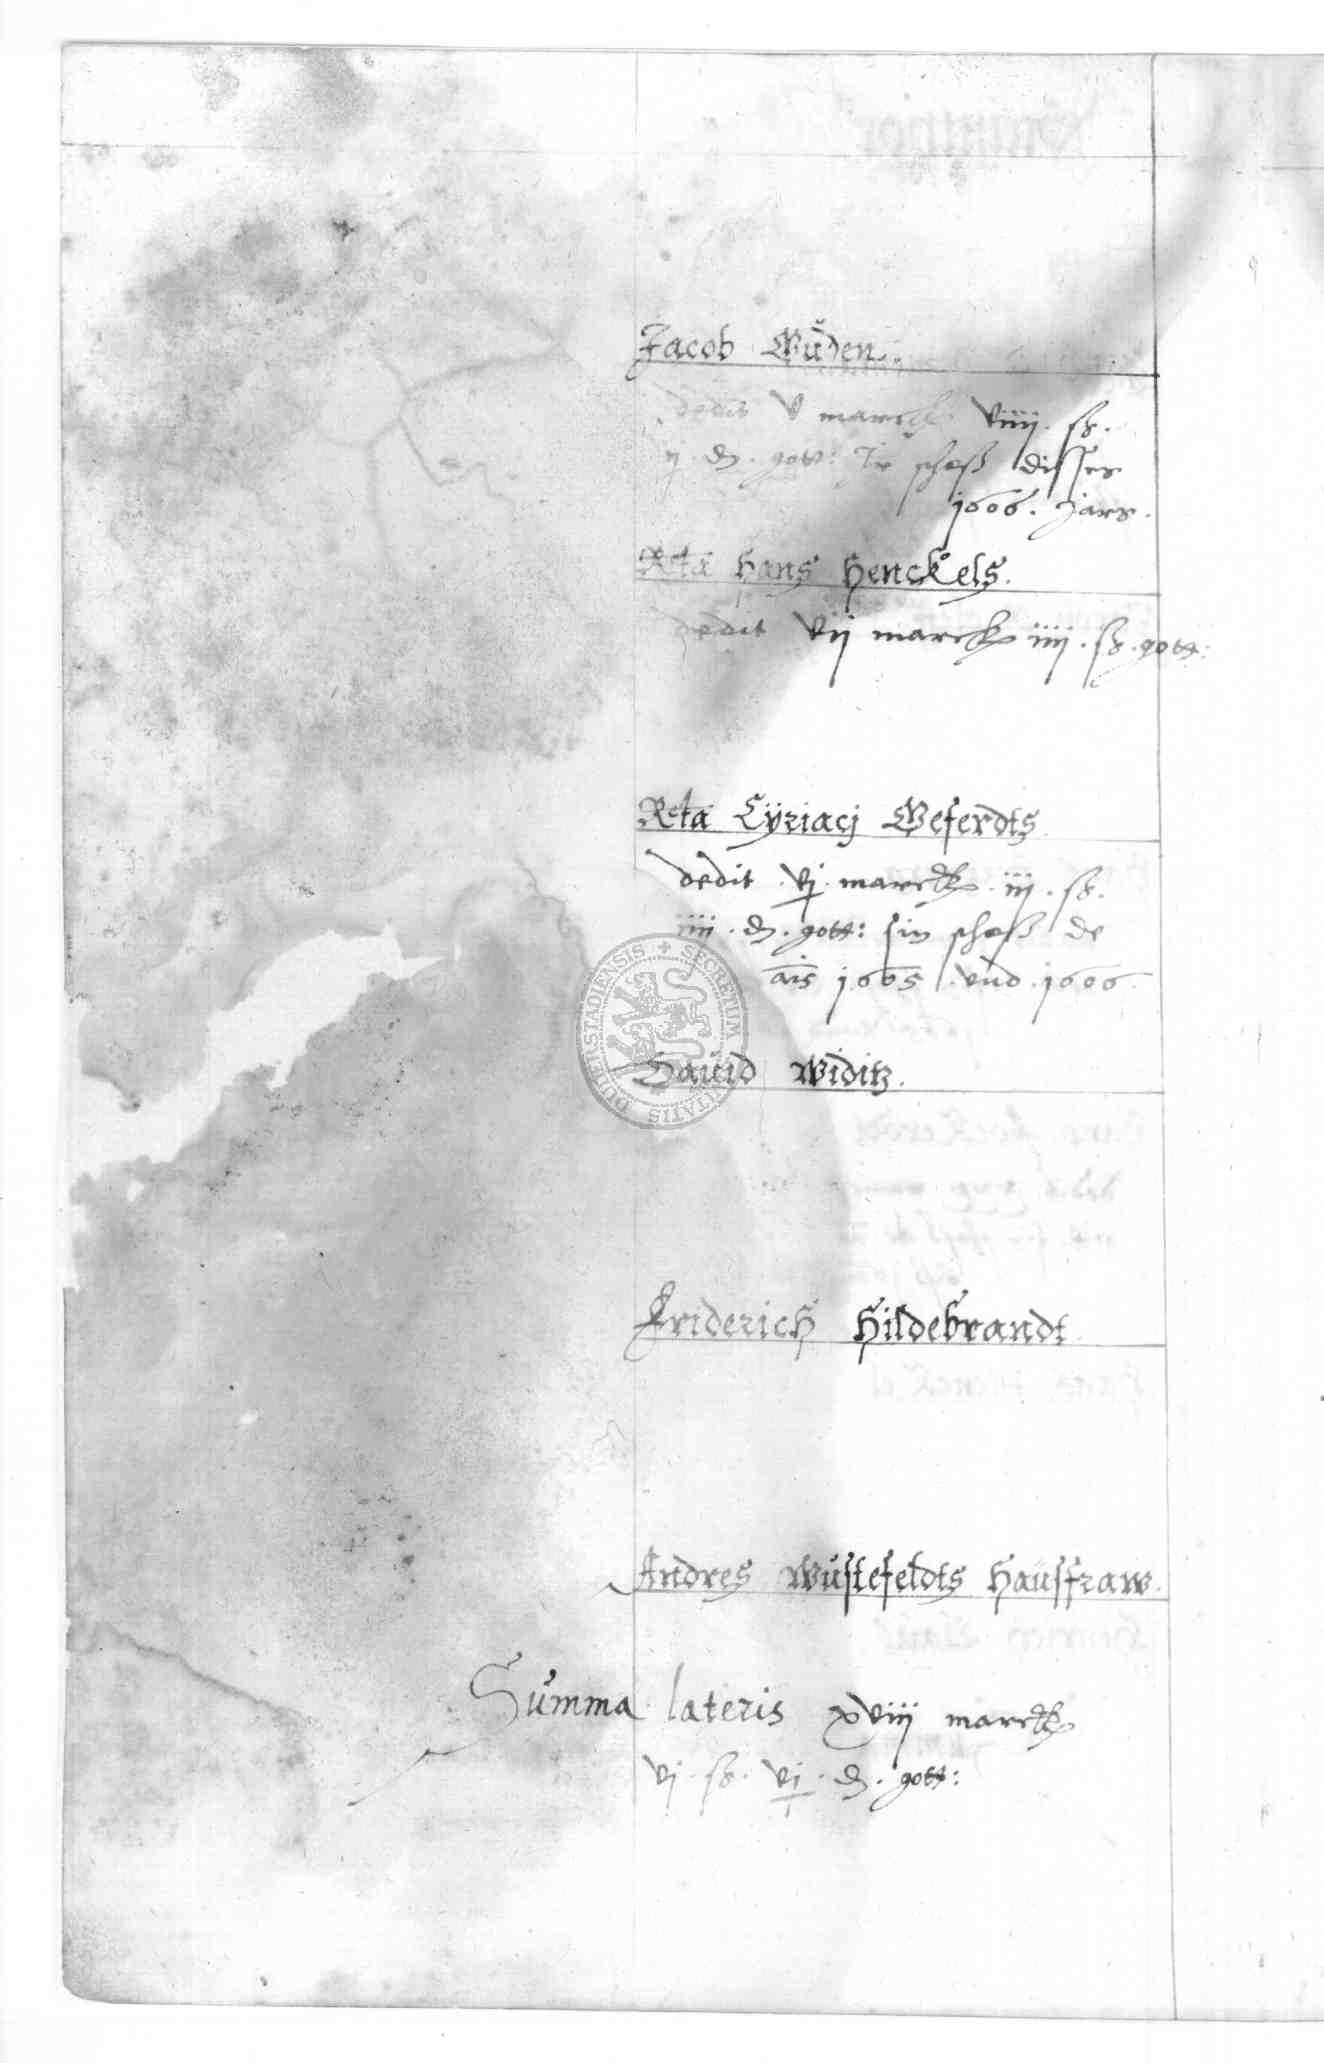 Jacob Wüden.
dedit v marck viiii. ß.
ij. d. gott: Ir schoß disses
1606. Jars.
Rcta Hans Henckels.
dedit vij marck iiii. ß. gott:
Rcta Cÿriacj Weferdts
dedit. vj. marck. iij. ß.
iiii. d. gott: sin schoß de
ais 1605. vnd. 1606.
Dauid Widitz.
Friderich Hildebrandt
Andres Wüstefeldts Haüsfraw.
Sümma lateris xviij marck
vj. ß. vj. d. gott:
SECRETUM CIVITATIS DUDERSTADIENSIS